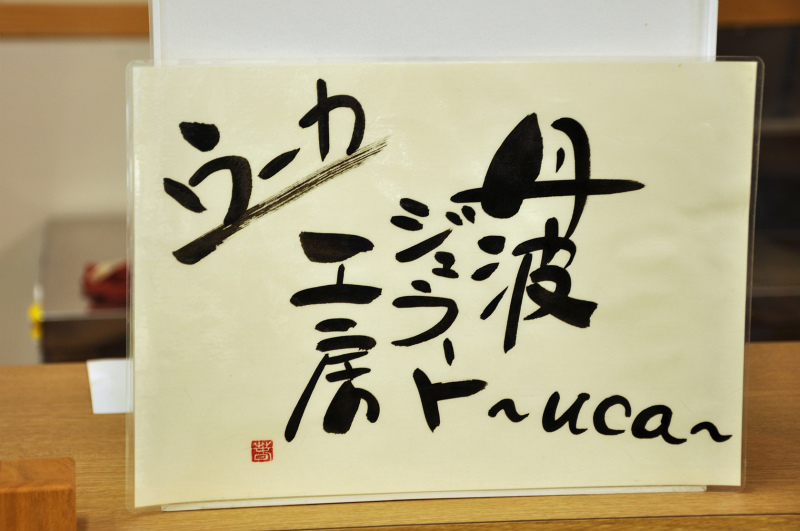 丹波
ジェラート
工房
ウーカ
~uca~